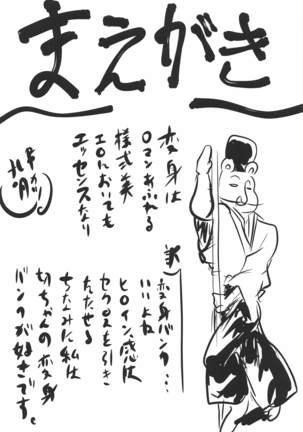 まえがき
変身は
ロマンあふれる
様式美
エロにおいても
エッセンスなり
訳）変身バンク…
いいよね
ヒロイン感は
セクロスを引き
たたせる
ちなみに私は
切ちゃんの変身
バンクが好きです。